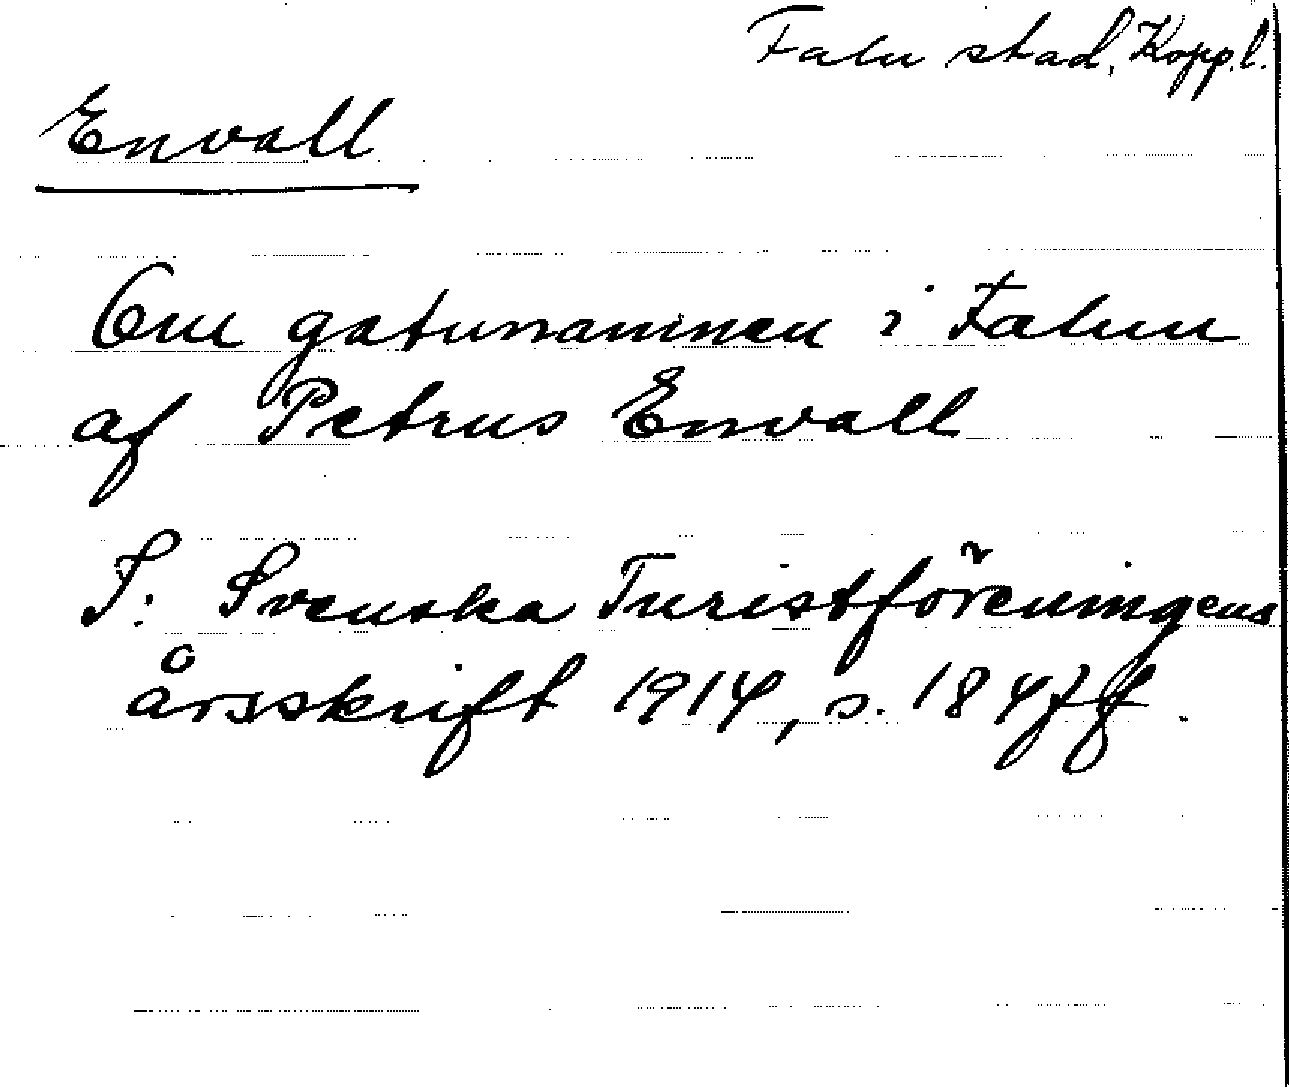 Falu stad, Kopp.l.
Envall
Om gatunamnen i Falun
af Petrus Envall
I: Svenska Turistföreningens
årsskrift 1914, s. 184ff.